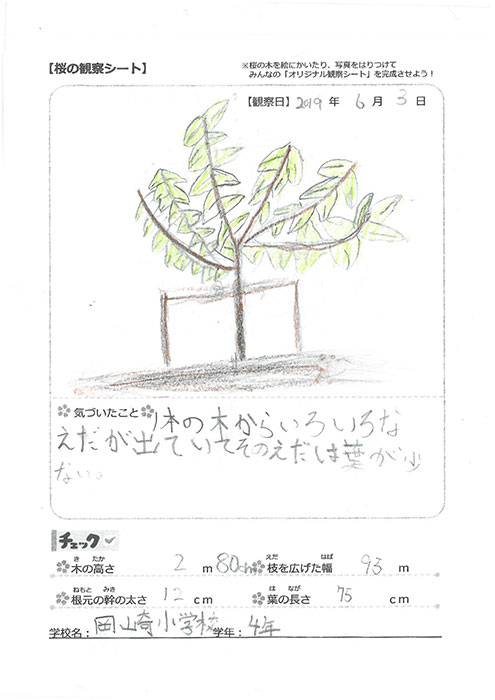 【桜の観察シート】
※桜の木を絵にかいたり、写真をはりつけて
みんなの「オリジナル観察シート」を完成させよう！
【観察日】2019 年 6 月 3 日
気づいたこと 1本の木からいろいろな
えだが出ていてそのえだは葉が少
ない。
チェック
きたか
木の高さ 2 m 80cm
えだ はば
枝を広げた幅 93 m
ねもと みき
根元の幹の太さ 12 cm
は なが
葉の長さ 75 cm
学校名: 岡山崎小学校 学年: 4年